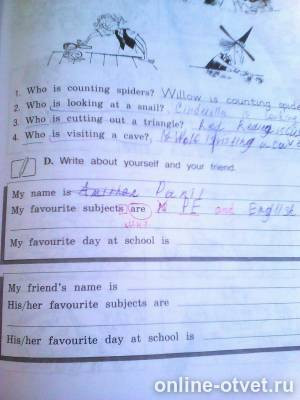 1. Who is counting spiders? Willow is counting spiders
2. Who is looking at a snail? Cinderella is looking
3. Who is cutting out a triangle? Red Riding
4. Who is visiting a cave? is visiting a cave
D. Write about yourself and your friend.
My name is
My favourite subjects are PE and English
My favourite day at school is
My friend's name is
His/her favourite subjects are
His/her favourite day at school is
online-otvet.ru